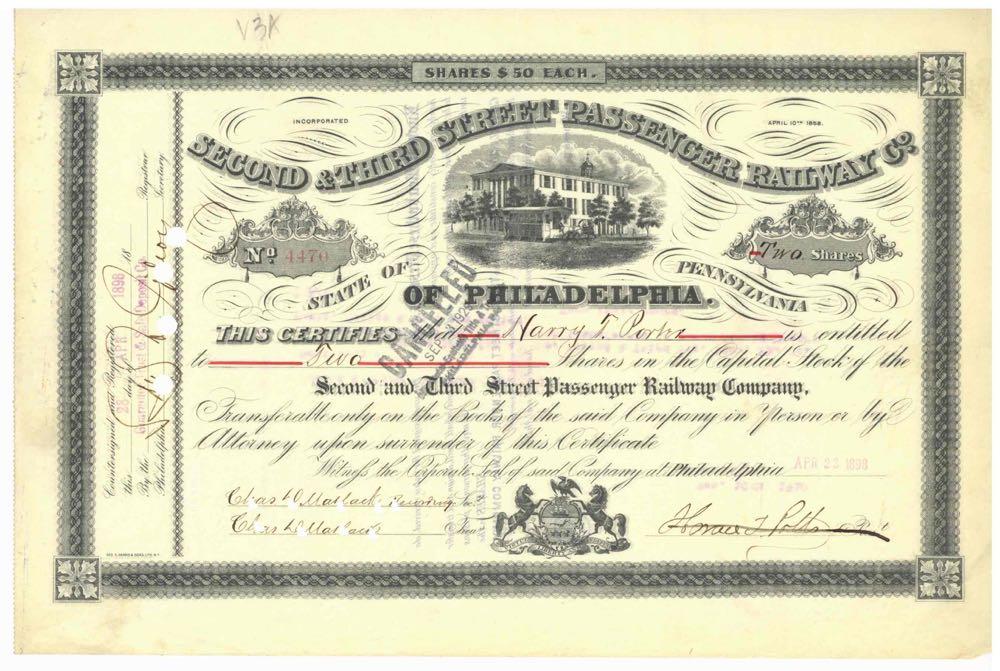 V3A
SHARES $50 EACH.
INCORPORATED
APRIL 10TH 1858.
SECOND & THIRD STREET PASSENGER RAILWAY CO
No 4470
Two Shares
STATE OF PENNSYLVANIA
OF PHILADELPHIA.
THIS CERTIFIES that Harry T. Porter is entitled
to Two Shares in the Capital Stock of the
Second and Third Street Passenger Railway Company,
Transferable only on the Books of the said Company in Person or by
Attorney upon surrender of this Certificate
Witness the Corporate Seal of said Company at Philadelphia APR 23 1898
Chas D Matlack Recording Sec.
Chas D Matlack Treas
Horace T. Potts Pt
CANCELLED
SEP
Countersigned and Registered
this 23 day of APR 1898 18
By the Registrar
Philadelphia Secretary